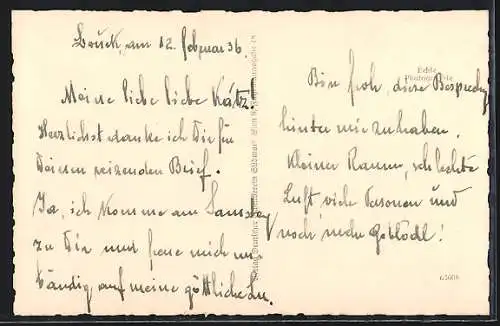 Bruck, am 12. Februar 36.
Meine liebe liebe Kätz!
Herzlichst danke ich Dir für
Deinen reizenden Brief.
Ja, ich komme am Samstag
zu Dir und freue mich un
bändig auf meine göttliche
Bin froh, diese Besprechg
hinter mir zu haben.
Kleiner Raum, schlechte
Luft viele Personen und
noch mehr Geblödl!
Echte
Photographie